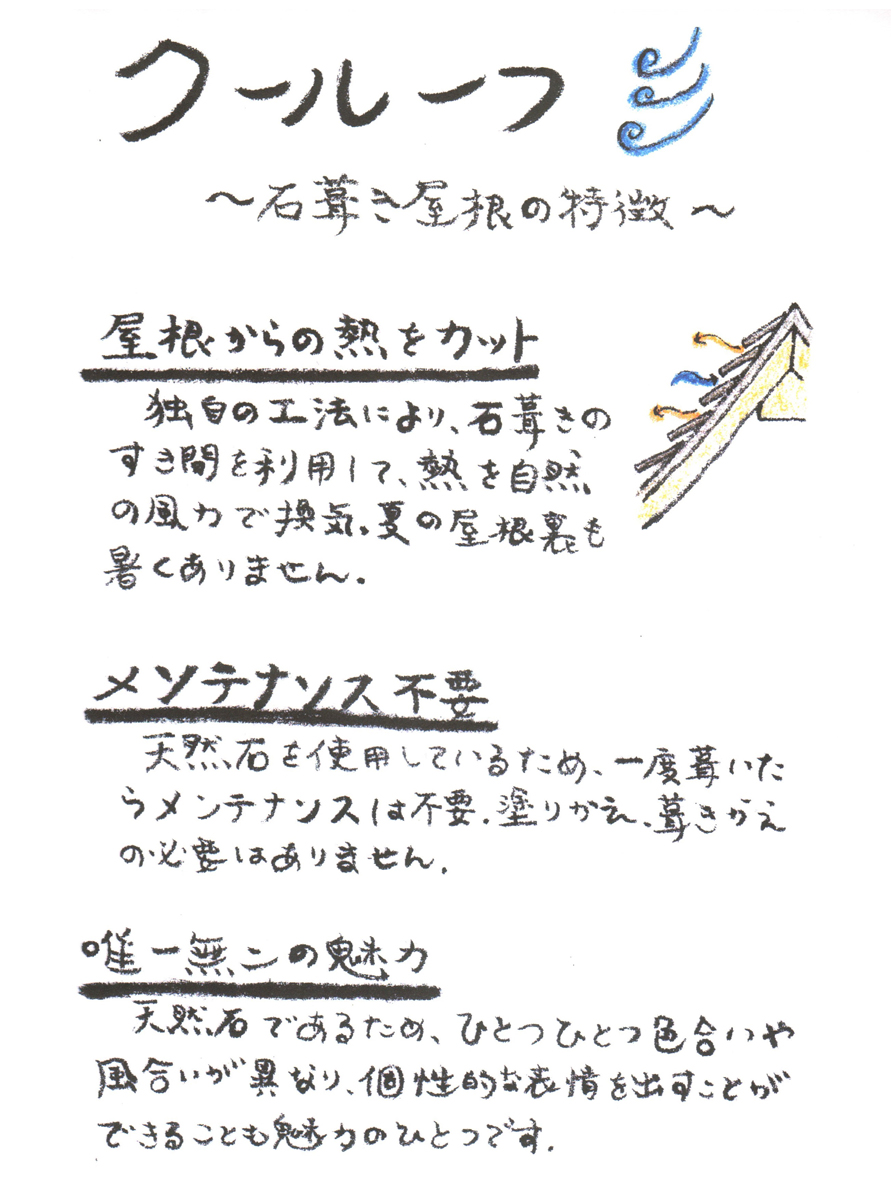 クールーフ
～石葺き屋根の特徴～
屋根からの熱をカット
独自の工法により、石葺きの
すき間を利用して、熱を自然
の風力で換気。夏の屋根裏も
暑くありません。
メンテナンス不要
天然石を使用しているため、一度葺いた
らメンテナンスは不要。塗りかえ、葺きかえ
の必要はありません。
唯一無二の魅力
天然石であるため、ひとつひとつ色合いや
風合いが異なり、個性的な表情を出すことが
できることも魅力のひとつです。